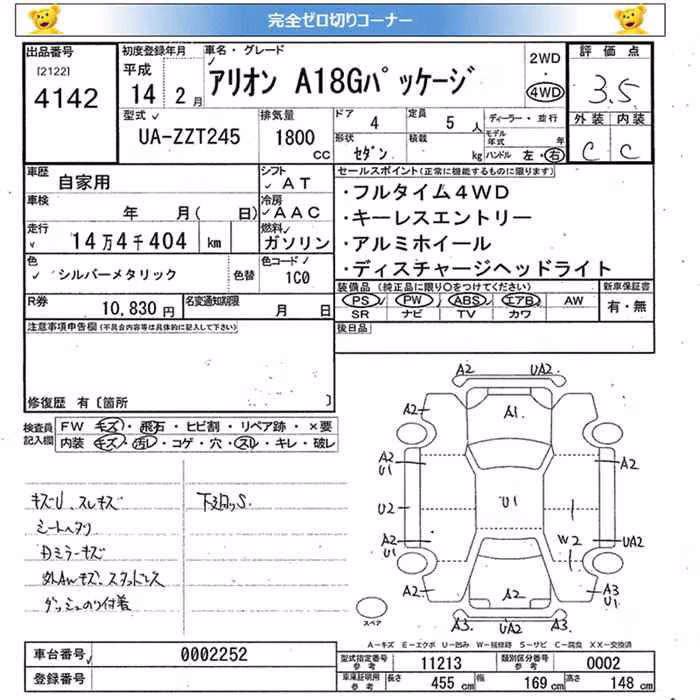 完全ゼロ切りコーナー
出品番号 初度登録年月 車名・グレード 2WD 評価点
[2122] 平成 アリオン A18Gパッケージ 4WD 3.5
4142 14 2月
型式 排気量 ドア 4 定員 5人 ディーラー・並行 外装 内装
UA-ZZT245 1800cc 形状 セダン 積載 kg モデル年式 年 ハンドル 左・右 C C
車歴 自家用 シフト AT セールスポイント(正常に機能するものに限ります)
車検 年 月( 日) 冷房 AAC ・フルタイム4WD
走行 14万4千404 km 燃料 ガソリン ・キーレスエントリー
・アルミホイール
色 シルバーメタリック 色替 色コード 1C0 ・ディスチャージヘッドライト
装備品(純正品に限り○をつけてください) 新車保証書
R券 10,830円 名変通知期限 月 日 PS PW ABS エアB AW 有・無
SR ナビ TV カワ
注意事項申告欄(不具合内容等は具体的に記入して下さい) 後日品
修復歴 有〔箇所 〕
検査員記入欄 FW キズ・飛石・ヒビ割・リペア跡・×要
内装 キズ・汚レ・コゲ・穴・スレ・キレ・破レ
キズU、スレキズ
シートヘタリ
ミラーキズ
外AWキズ、スタッドレス
ダッシュのり付着
A2 UA2
A2 A1
A2 U1 A2
U2 U1
A2 U1 W2 UA2
A2 A2 A3 U1
A3 UA2 A3
スペア
A-キズ E-エクボ U-凹み W-補修跡 S-サビ C-腐食 XX-交換済
車台番号 0002252 型式指定番号 参考 11213 類別区分番号 参考 0002
登録番号 車庫証明用 参考 長さ 455cm 幅 169cm 高さ 148cm